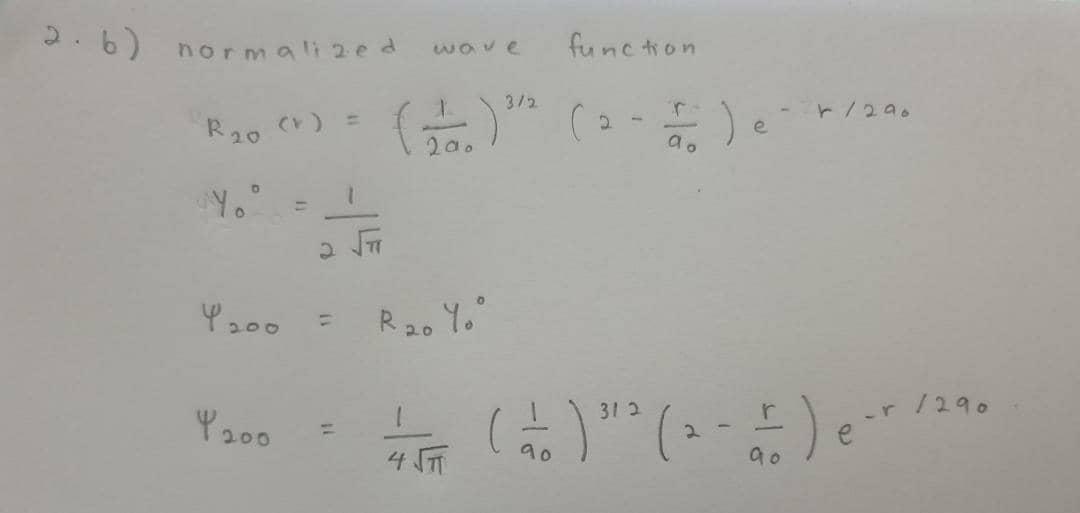 2. b) normalized wave function
R₂₀ (r) = (1/2a₀)^3/2 (2 - r/a₀) e^-r/2a₀
Y₀⁰ = 1/2√π
Ψ₂₀₀ = R₂₀ Y₀⁰
Ψ₂₀₀ = 1/4√π (1/a₀)^3/2 (2 - r/a₀) e^-r/2a₀